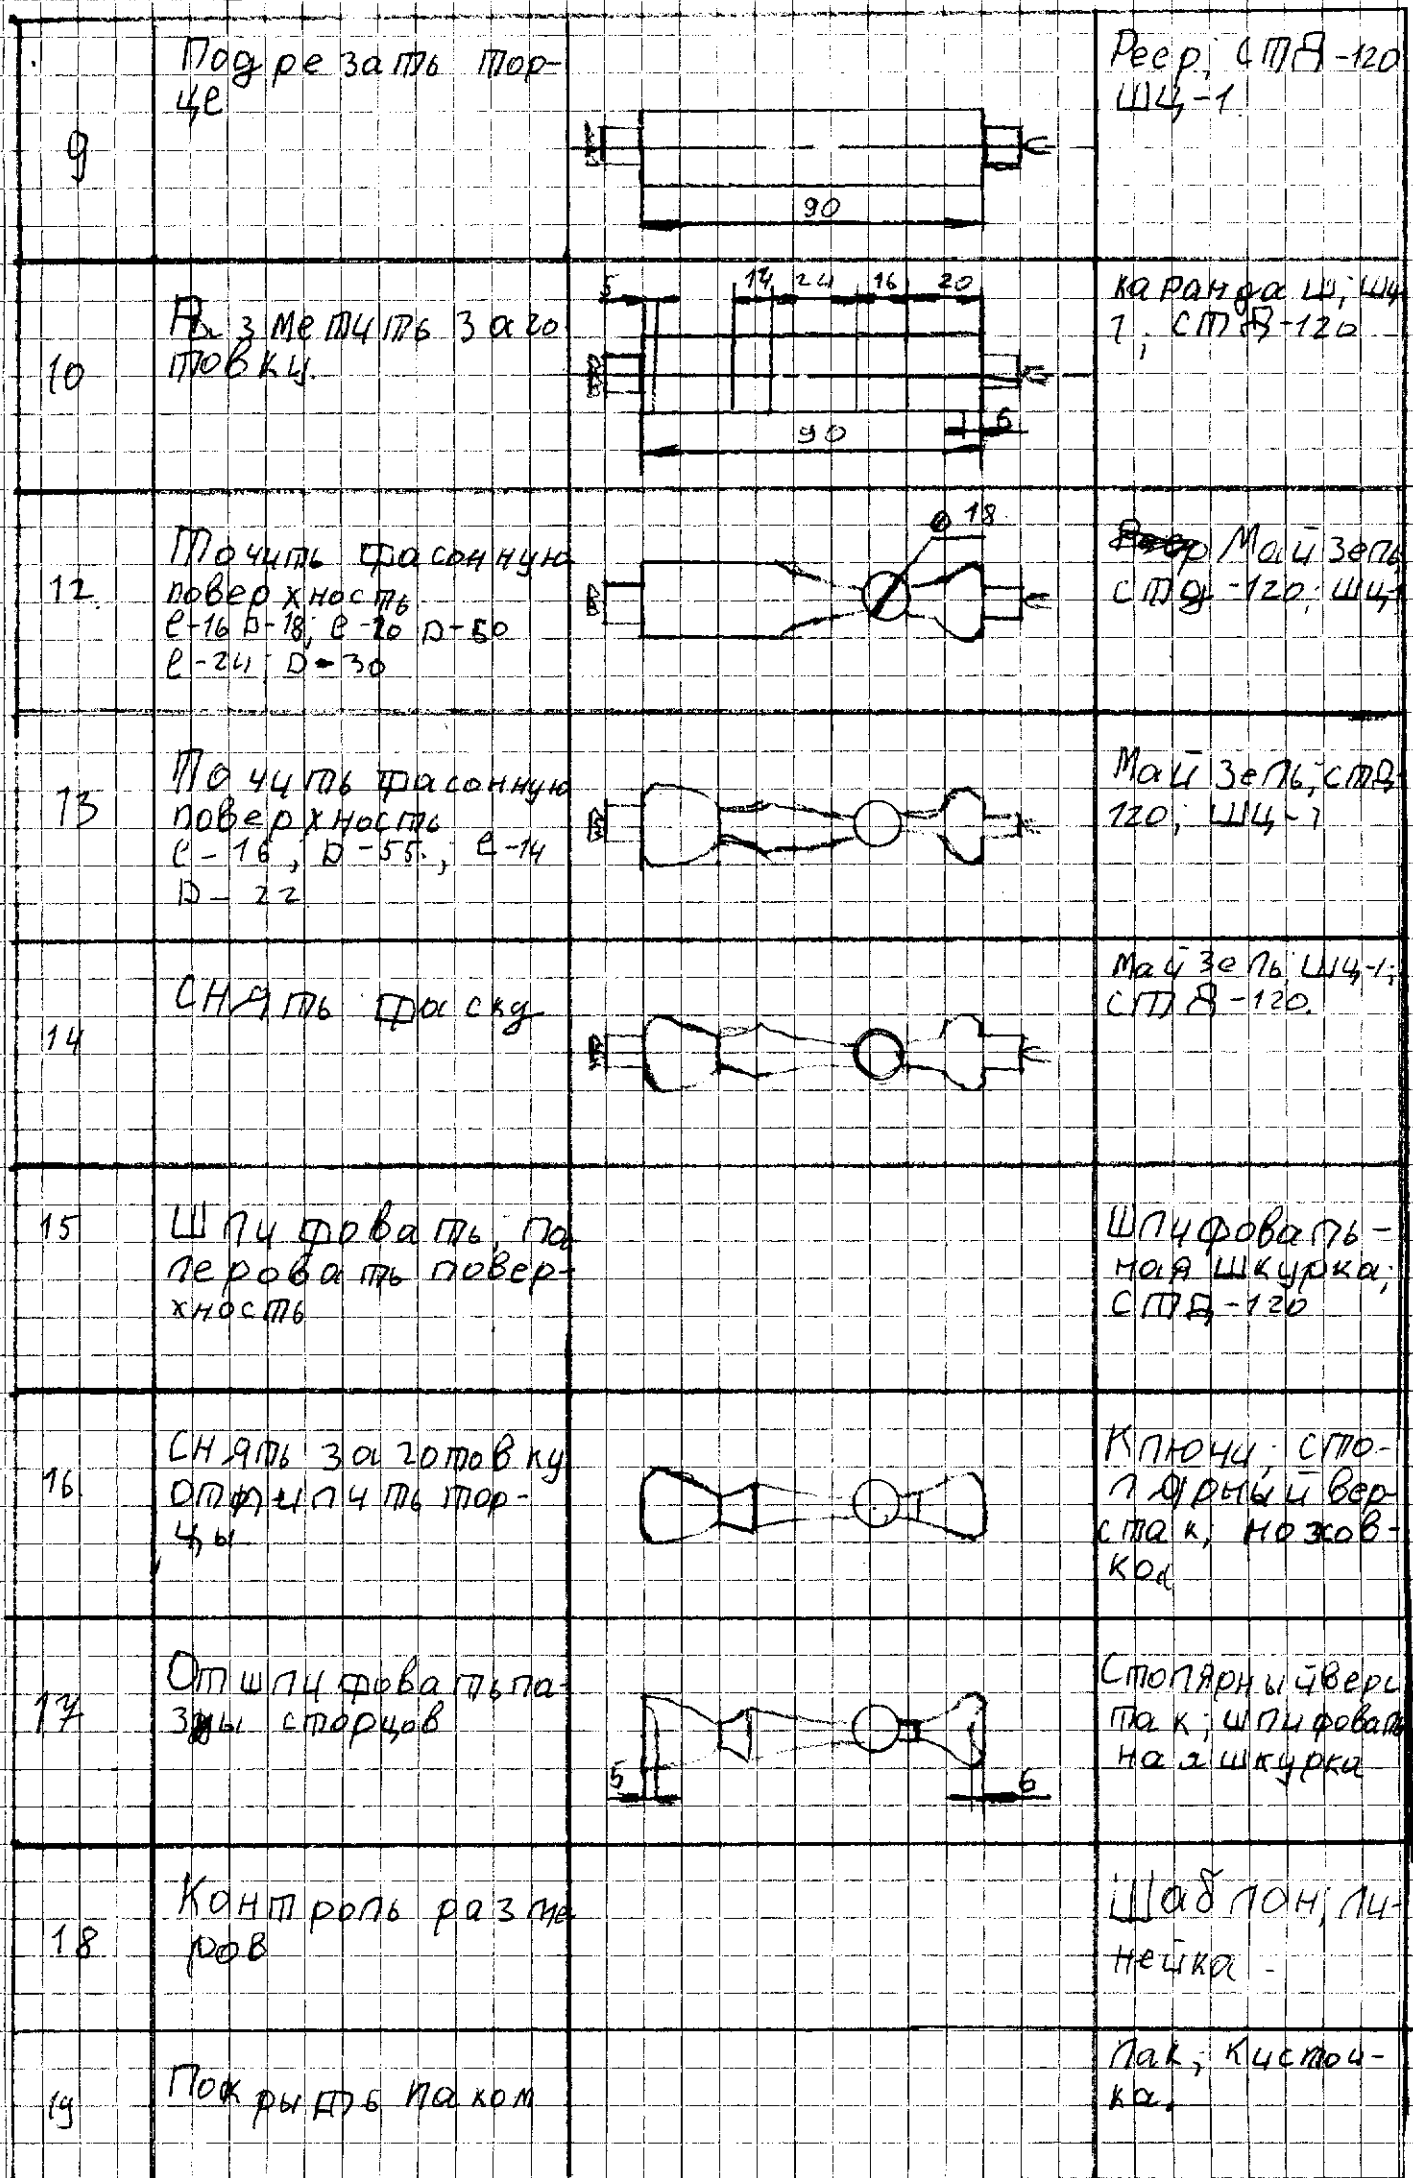 9
Подрезать тор-
це
90
Реер; СТД-120
ШЦ-1
10
Разметить заго
товку.
5 14 24 16 20
90 6
карандаш; ШЦ
1; СТД-120
12
Точить фасонную
поверхность
l-16 D-18; l-20 D-50
l-24; D-30
ø 18
Майзель
СТД-120; ШЦ-1
13
Точить фасонную
поверхность
l-16; D-55.; l-14
D-22
Майзель; СТД-
120; ШЦ-1
14
Снять фаску
Майзель ШЦ-1;
СТД-120.
15
Шлифовать, по
леровать повер-
хность
Шлифоваль-
ная шкурка;
СТД-120
16
Снять заготовку
отпилить тор-
цы
Ключи; сто-
лярный вер-
стак; ножов-
ка
17
Отшлифовать па-
зы сторцов
5 6
Столярный верс
так; шлифоваль
ная шкурка
18
Контроль разме
ров
Шаблон; ли-
нейка -
19
Покрыть лаком
Лак; Кисточ-
ка.